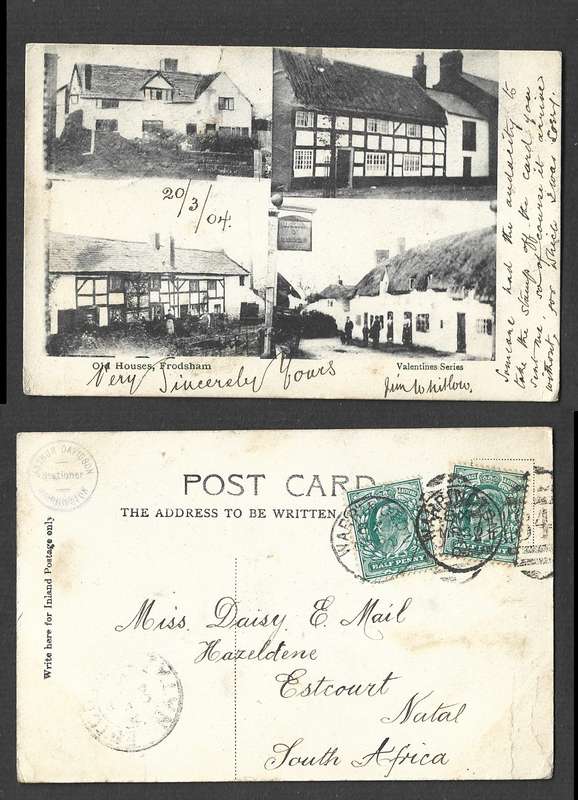 20/3/04.
Old Houses, Frodsham
Valentines Series
Very Sincerely Yours
Jim Whitlow.
Someone had the audality to
take the stamps off the card you
sent me, so of course it arrive
without, for which I was Sorry.
ARTHUR DAVIDSON
Stationer
WARRINGTON
POST CARD
THE ADDRESS TO BE WRITTEN
Write here for Inland Postage only
HALF PENNY
WARRIN
Miss. Daisy E. Mail
Hazeldene
Estcourt
Natal
South Africa
NATAL